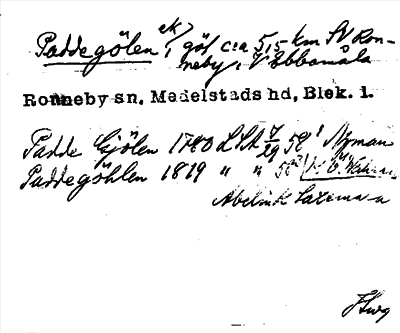 Paddegölen ek/, göl c:a 5,5 km SV Ron-
neby i V Ebbamåla
Ronneby sn, Medelstads hd, Blek. l.
Padde Gjölen 1780 LSA 7/29 58¹ Nyman
Paddegöhlen 1819 " " 58²
Abelin K Lazema